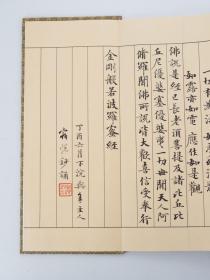 如露亦如電 應作如是觀
佛說是經已長老須菩提及諸比丘比
丘尼優婆塞優婆夷一切世間天人阿
脩羅聞佛所說皆大歡喜信受奉行
金剛般若波羅蜜經
丁酉六月下浣主人